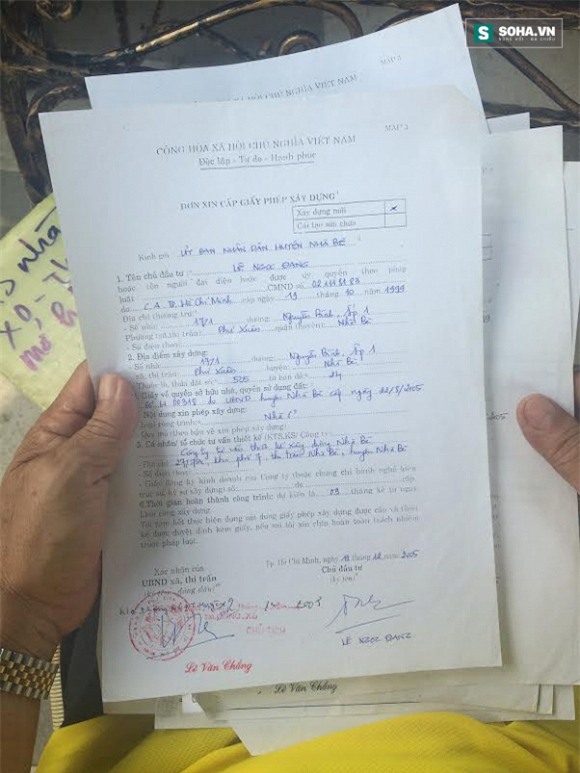 SOHA.VN
MẪU 3
XÃ HỘI CHỦ NGHĨA VIỆT NAM
MẪU 3
CỘNG HÒA XÃ HỘI CHỦ NGHĨA VIỆT NAM
Độc lập - Tự do - Hạnh phúc
ĐƠN XIN CẤP GIẤY PHÉP XÂY DỰNG
Xây dựng mới x
Cải tạo sửa chữa
Kính gửi: UỶ BAN NHÂN DÂN HUYỆN NHÀ BÈ
1. Tên chủ đầu tư: LÊ NGỌC ĐANG
hoặc tên người đại diện hoặc được uỷ quyền theo pháp
luật CMND số:
do C.A TP. Hồ Chí Minh cấp ngày 19 tháng 10 năm 1999
Địa chỉ thường trú:
- Số nhà: 19/1 đường: Nguyễn Bình, ấp 1
Phường (xã, thị trấn): Phú Xuân quận (huyện): Nhà Bè
- Số điện thoại:
2. Địa điểm xây dựng:
- Số nhà: 19/1 đường: Nguyễn Bình, ấp 1
xã, thị trấn: Phú Xuân huyện: Nhà Bè
- Thuộc lô, thửa đất số: 525 tờ bản đồ: 24
3. Giấy về quyền sở hữu nhà, quyền sử dụng đất:
UBND huyện Nhà Bè cấp ngày 22/8/2005
4. Nội dung xin phép xây dựng:
Loại công trình: Nhà ở
Quy mô (theo bản vẽ xin phép xây dựng)
5. Cá nhân/ tổ chức tư vấn thiết kế (KTS,KS/ Công ty)
Công ty tư vấn thiết kế xây dựng Nhà Bè
Địa chỉ khu phố 7, thị trấn Nhà Bè, huyện Nhà Bè
- Số điện thoại:
- Giấy đăng ký kinh doanh của Công ty (hoặc chứng chỉ hành nghề kiến
trúc sư/ kỹ sư xây dựng) số: do cấp
6. Thời gian hoàn thành công trình: dự kiến là 03 tháng kể từ ngày
khởi công xây dựng.
Tôi cam kết thực hiện đúng nội dung giấy phép xây dựng được cấp và thiết
kế được duyệt đính kèm giấy, nếu sai tôi xin chịu hoàn toàn trách nhiệm
trước pháp luật.
Xác nhận của
UBND xã, thị trấn
(ký tên, đóng dấu)
Tp. Hồ Chí Minh, ngày 12 tháng 12 năm 2005
Chủ đầu tư
(ký tên)
CHỦ TỊCH
LÊ NGỌC ĐANG
Lê Văn Chẳng
Lê Văn Chẳng